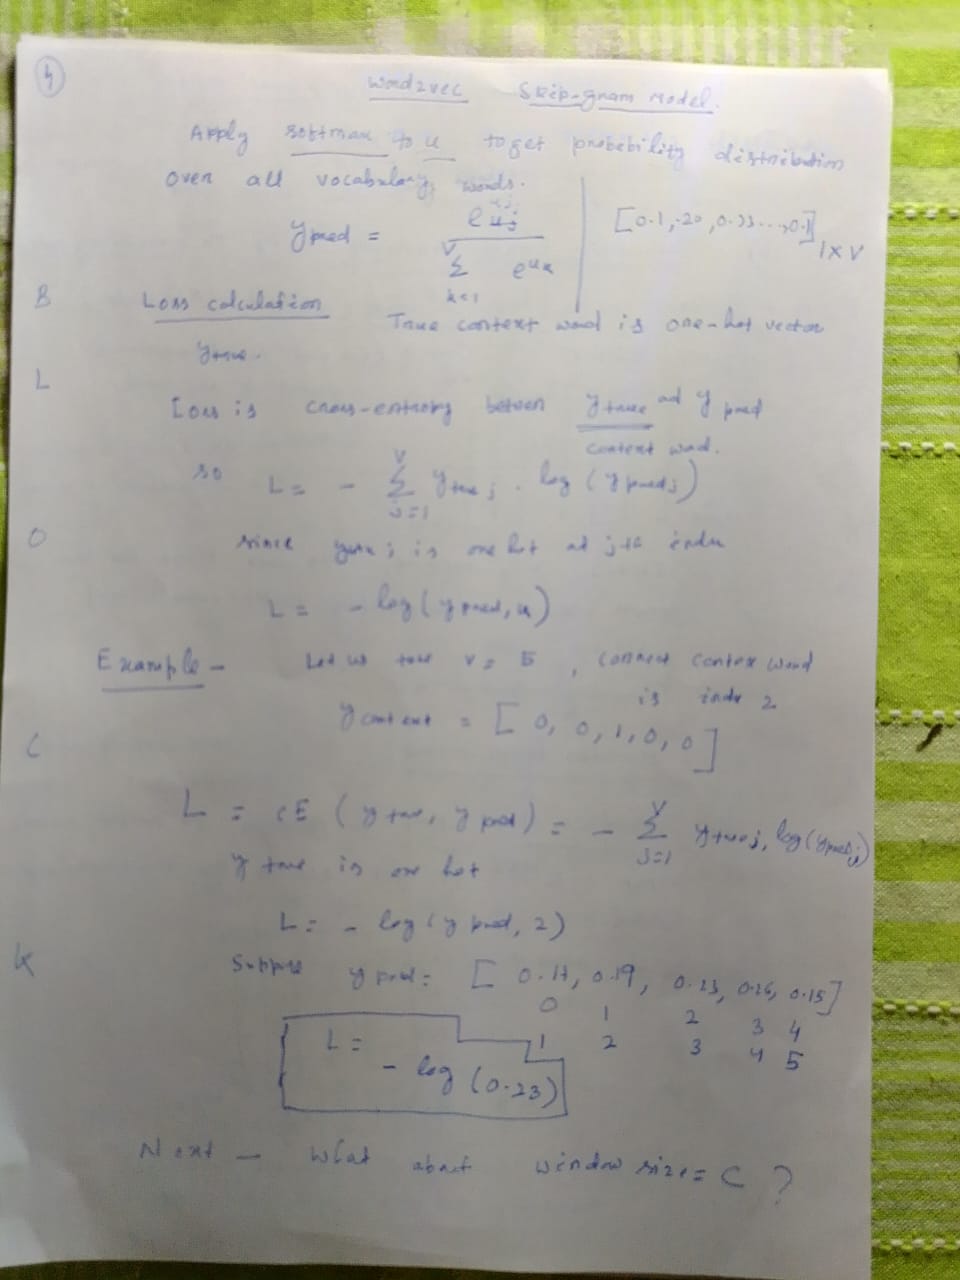 4
Word2vec Skip-gram Model.
Apply softmax to u to get probability distribution
over all vocabulary words.
y pred = e^{u_j} / Σ_{k=1}^{V} e^{u_k}
[0.1, .20, 0.33...,0.1] 1×V
B Loss calculation True context word is one-hot vector
y true.
L
Loss is cross-entropy between y true and y pred
context word.
so L = - Σ_{j=1}^{V} y true j . log (y pred j)
O since y true j is one hot at j th index
L = - log (y pred, k)
Example - Let us take V = 5, correct contex word
is index 2
y context = [0, 0, 1, 0, 0]
C
L = CE (y true, y pred) = - Σ_{j=1}^{V} y true j, log (y pred j)
y true is one hot
L = - log (y pred, 2)
K Suppose y pred = [0.17, 0.19, 0.23, 0.26, 0.15]
0 1 2 3 4
1 2 3 4 5
L =
- log (0.23)
Next - What about window size = C ?